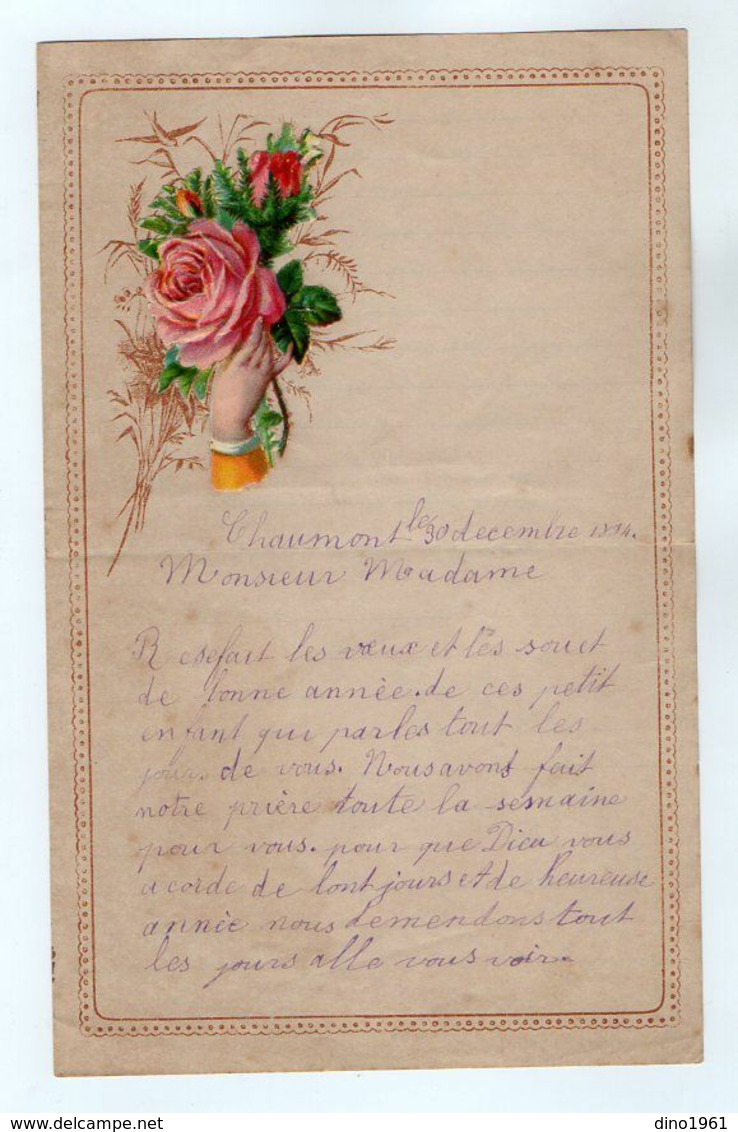 Chaumont le 30 decembre 1894.
Monsieur Madame
Resefait les vœux et les souet
de bonne année. de ces petit
enfant qui parles tout les
jour. de vous. Nous avons fait
notre prière toute la semaine
pour vous. pour que Dieu vous
acorde de lont jours et de heureuse
année nous demendons tout
les jours alle vous voir.
dino1961